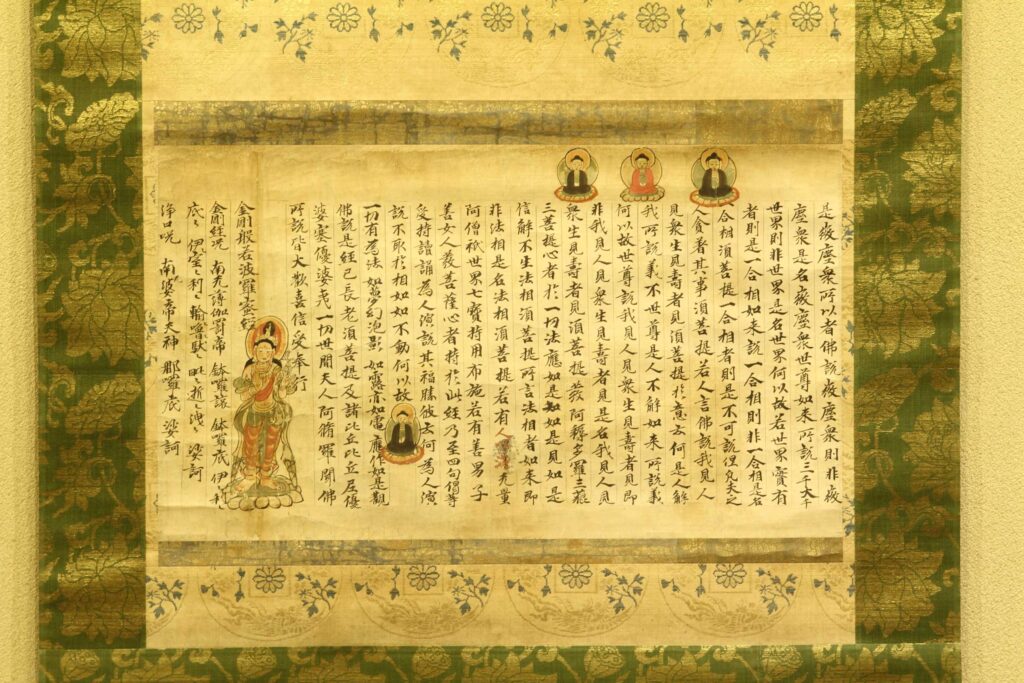 是微塵衆所以者佛說微塵衆則非微
塵衆是名微塵衆世尊如來所說三千大千
世界則非世界是名世界何以故若世界實有
者則是一合相如來說一合相則非一合相是名
一合相須菩提一合相者則是不可說但凡夫之
人貪著其事須菩提若人言佛說我見人
見衆生見壽者見須菩提於意云何是人解
我所說義不世尊是人不解如來所說義
何以故世尊說我見人見衆生見壽者見即
非我見人見衆生見壽者見是名我見人見
衆生見壽者見須菩提發阿耨多羅三藐
三菩提心者於一切法應如是知如是見如是
信解不生法相須菩提所言法相者如來即
非法相是名法相須菩提若有人无量
阿僧祇世界七寶持用布施若有善男子
善女人發菩薩心者持於此經乃至四句偈等
受持讀誦為人演說其福勝彼云何為人演
說不取於相如如不動何以故
一切有為法如夢幻泡影如露亦如電應如是觀
佛說是經已長老須菩提及諸比丘比丘尼優
婆塞優婆夷一切世間天人阿脩羅聞佛
所說皆大歡喜信受奉行
金剛般若波羅蜜經
金剛經呪 南无薄伽哥帝 鉢囉讓 鉢囉底 伊利々
底々 伊室々利々 輸嚕馱々 毗々折々洩 娑訶
淨口呪 南婆帝夫神 那囉底 娑訶